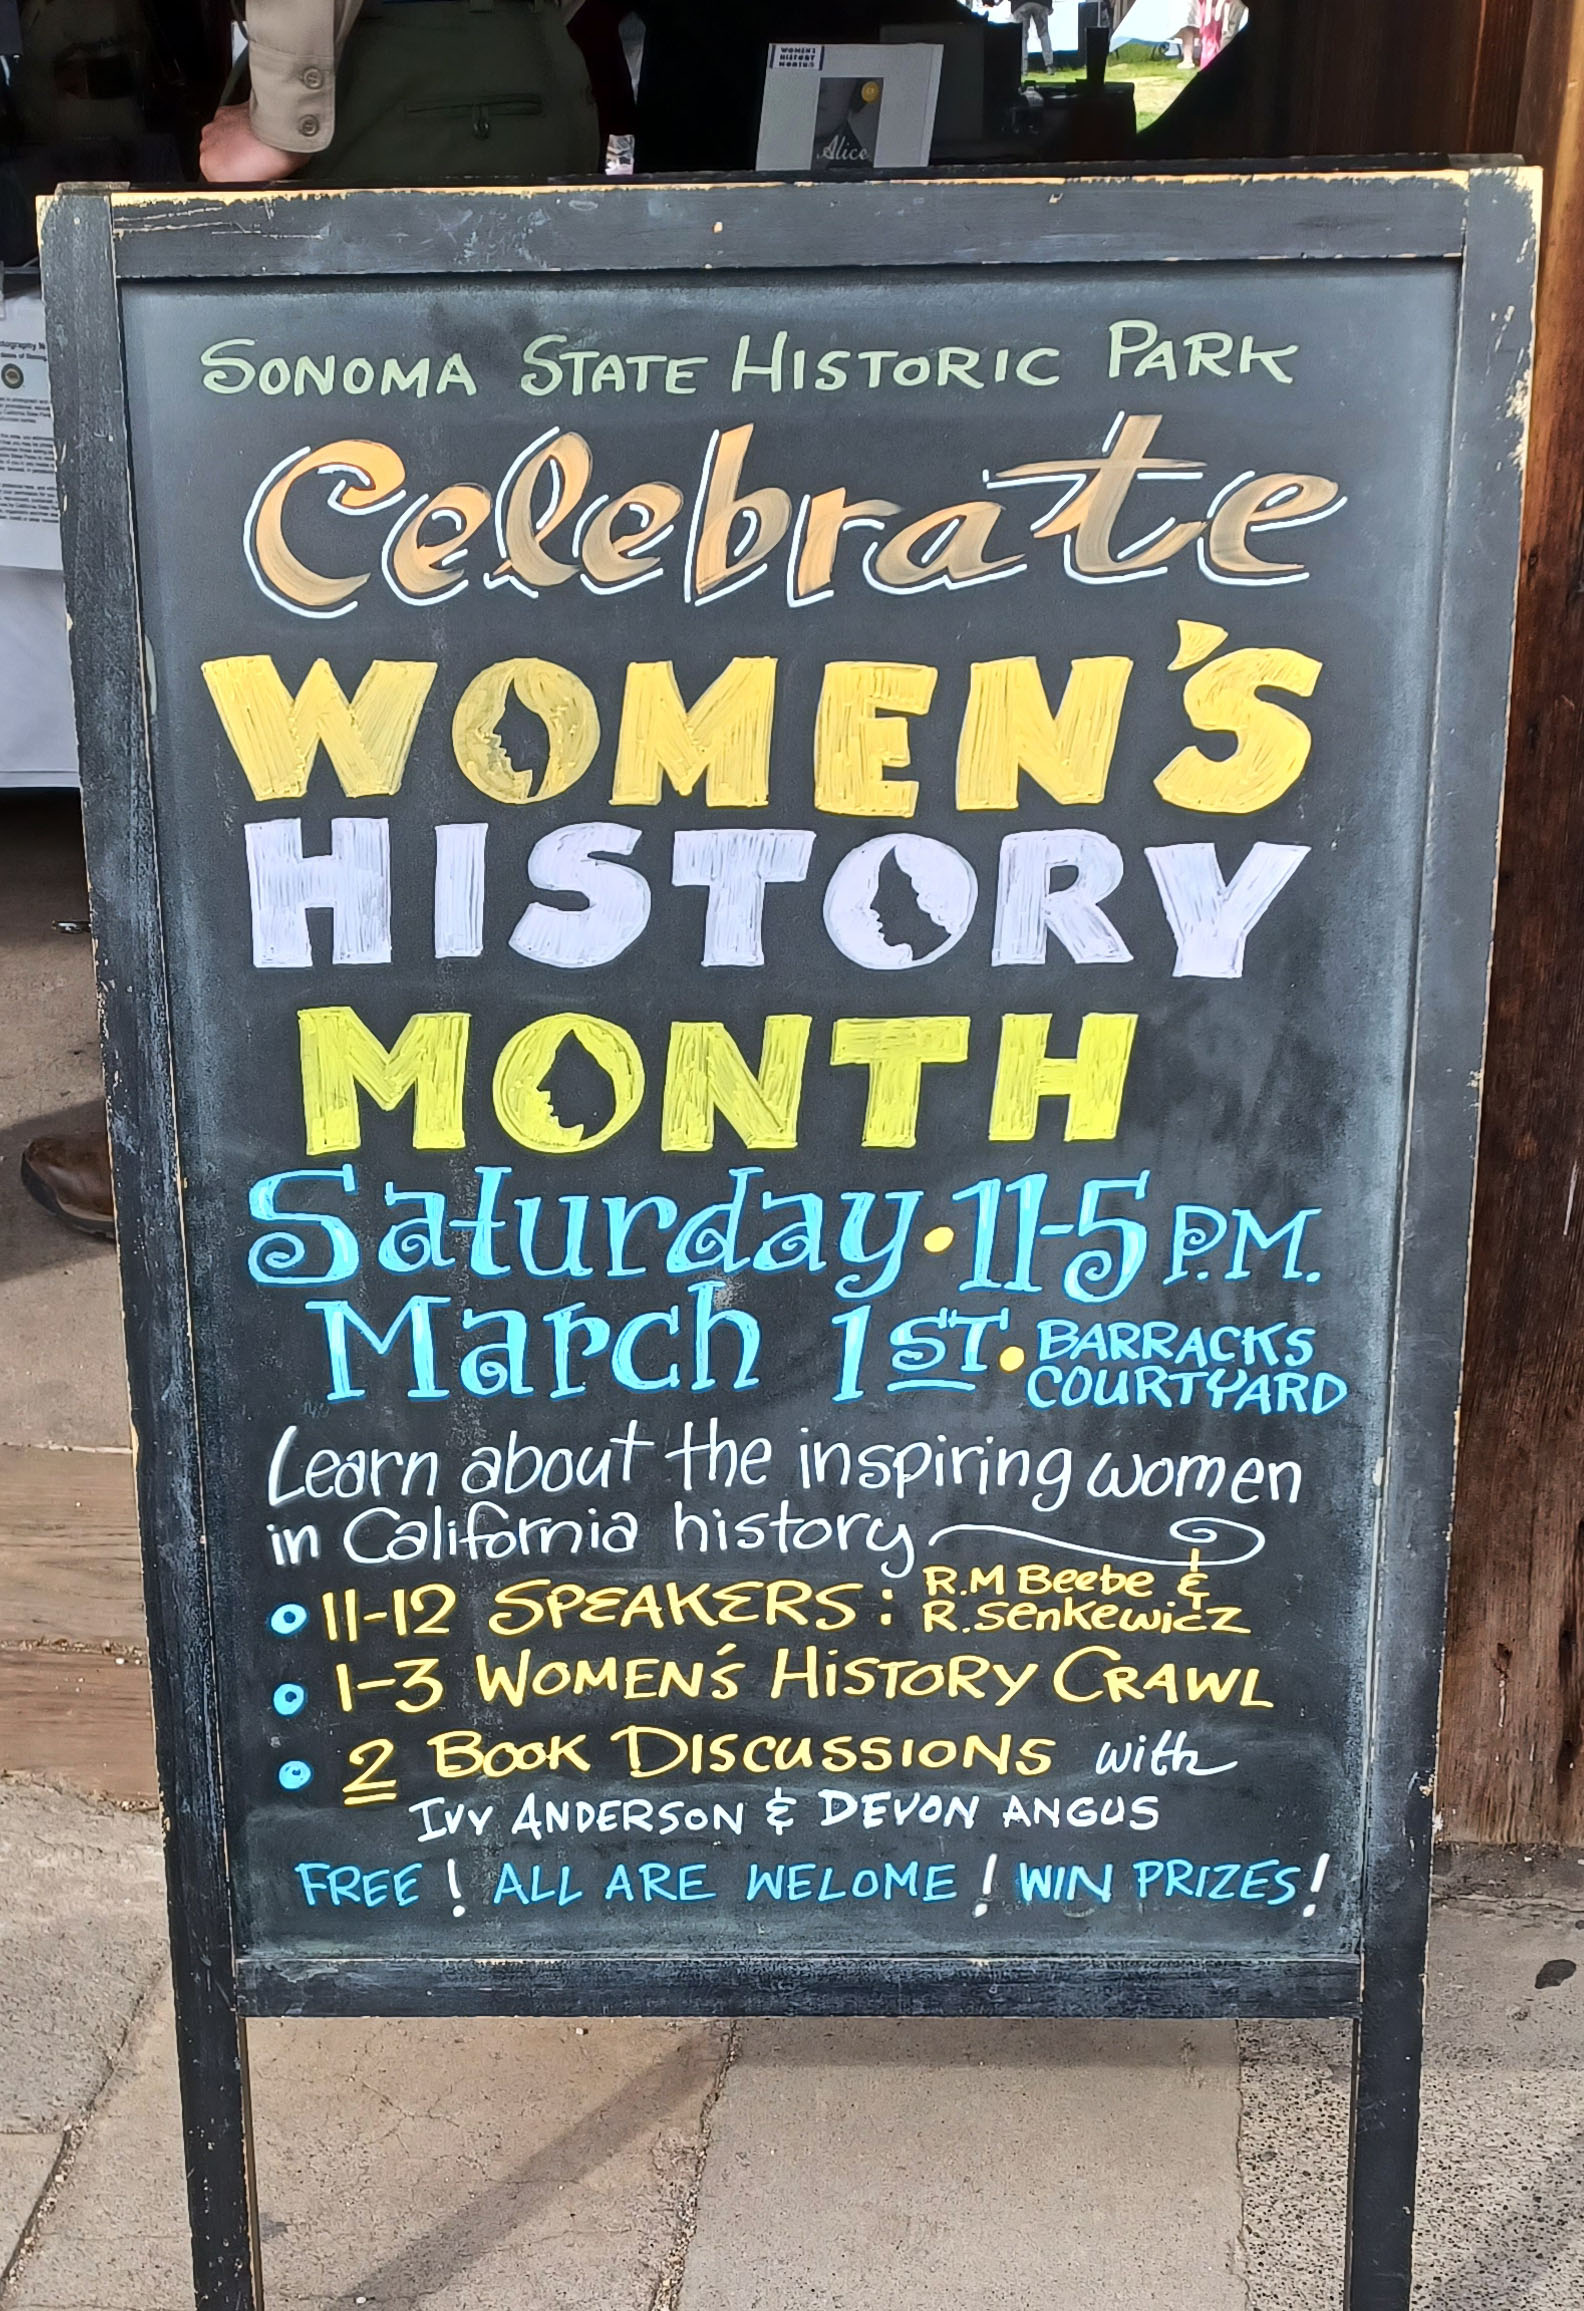 WOMEN'S
HISTORY
MONTH
Alice
SONOMA STATE HISTORIC PARK
Celebrate
WOMEN'S
HISTORY
MONTH
Saturday • 11-5 P.M.
March 1ST • BARRACKS
COURTYARD
Learn about the inspiring women
in California history
11-12 SPEAKERS: R.M Beebe &
R. Senkewicz
1-3 WOMEN'S HISTORY CRAWL
2 BOOK DISCUSSIONS with
IVY ANDERSON & DEVON ANGUS
FREE! ALL ARE WELOME! WIN PRIZES!